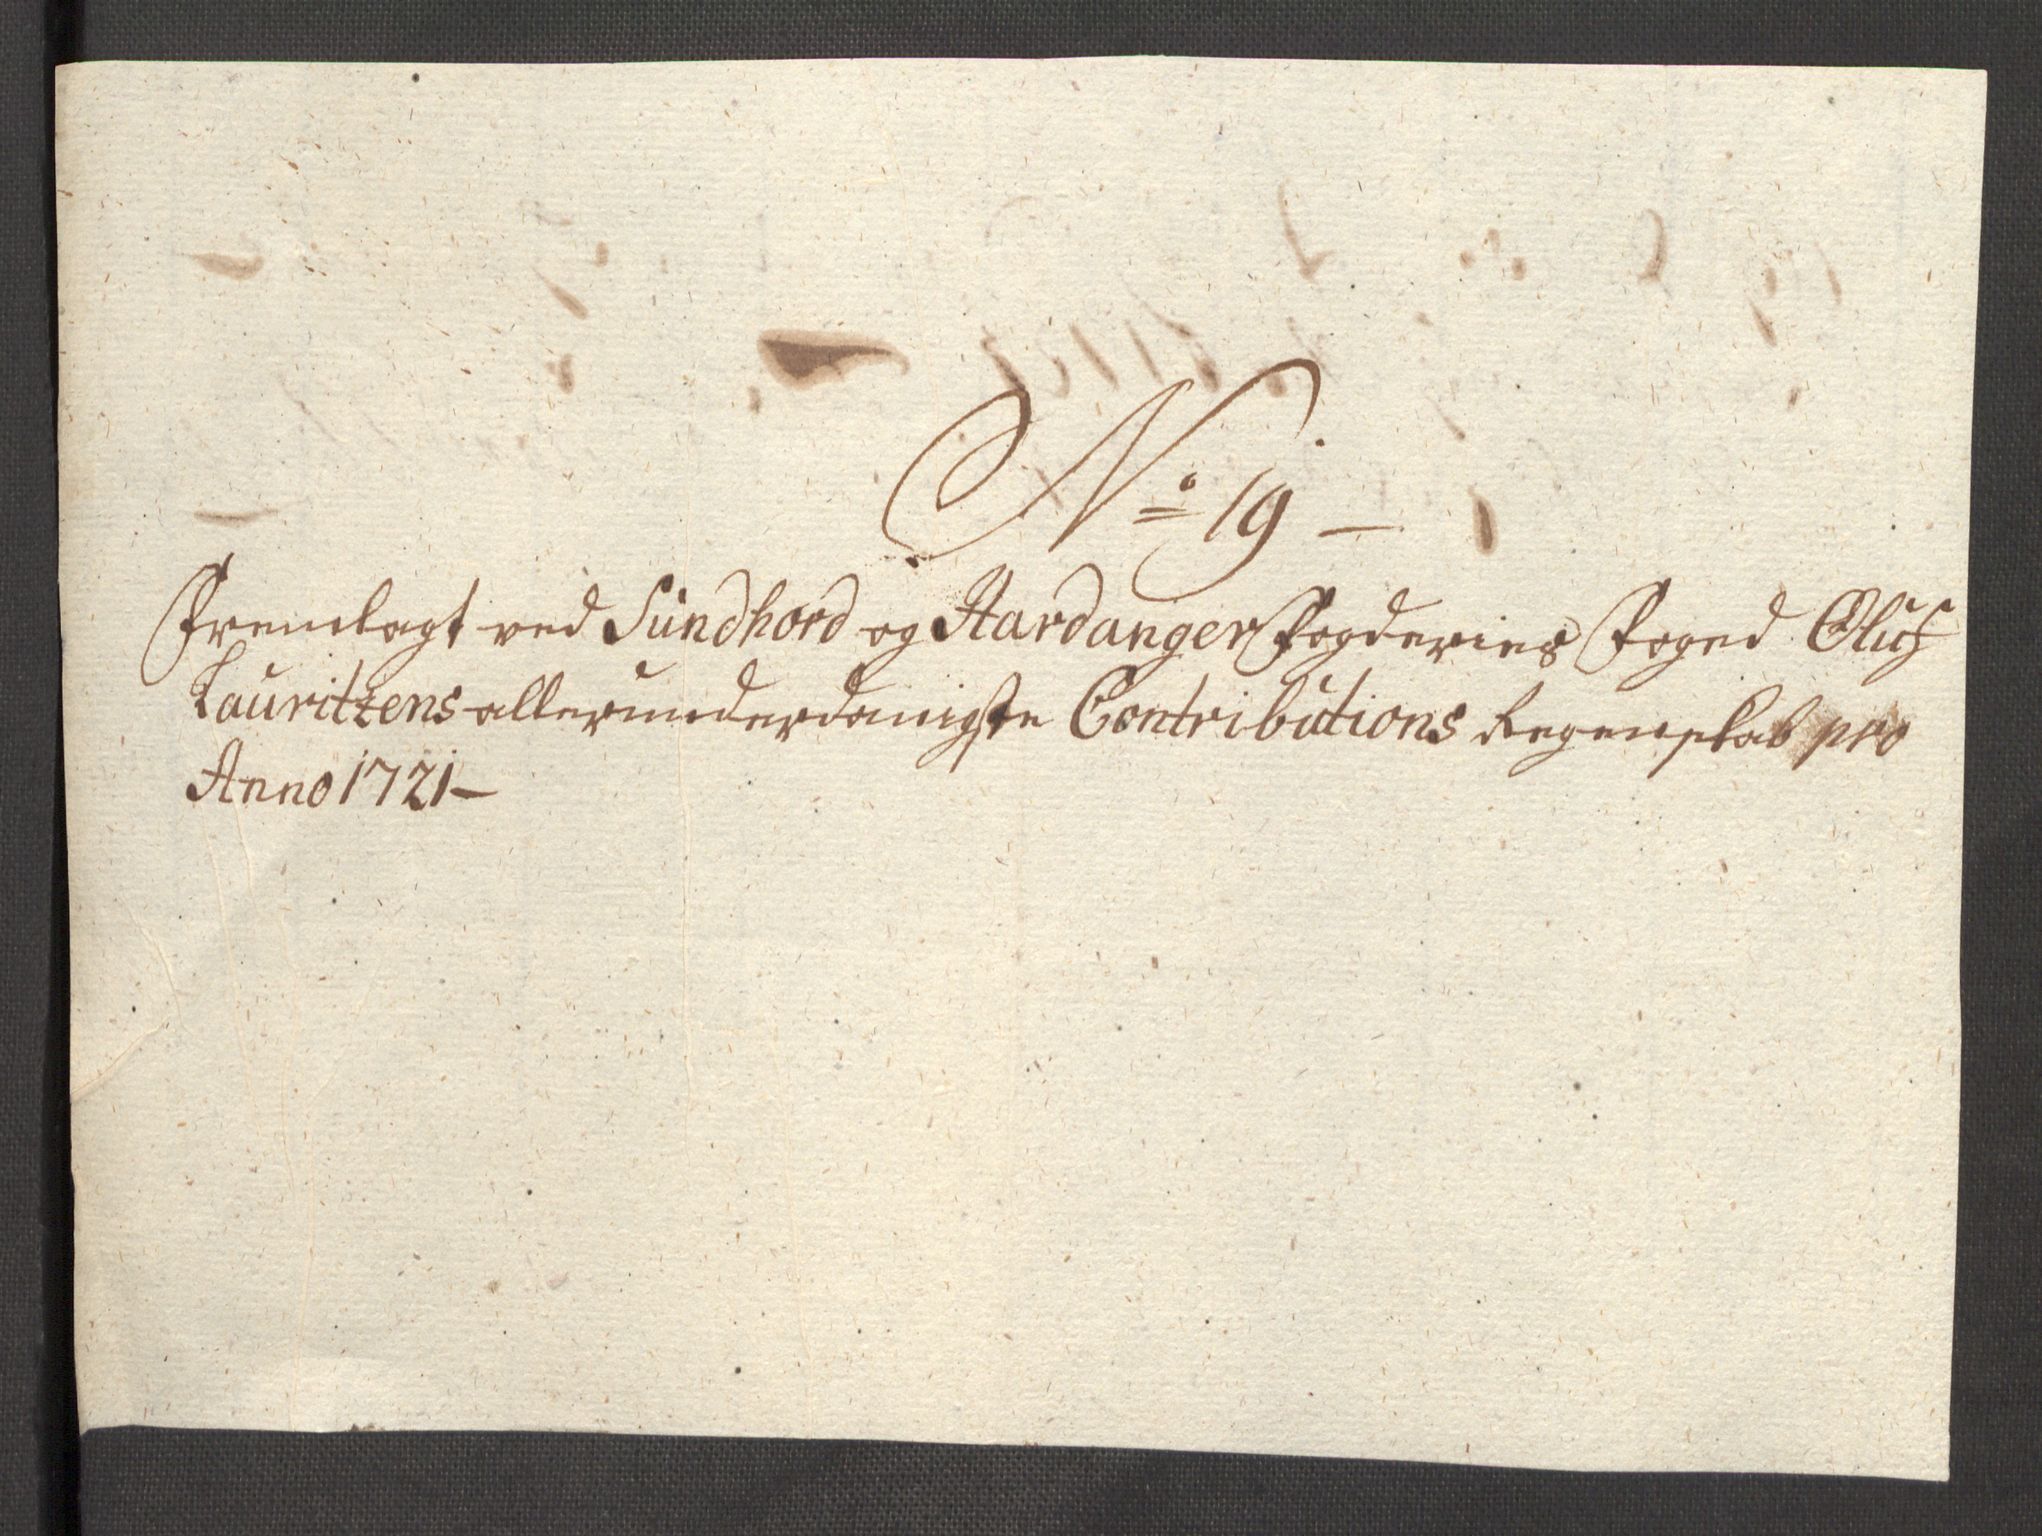 No 19 –
Fremlagt ved Sundhord og Hardanger Fogderies Foged Oluf
Lauritzens allerunderdanigste Contributions Regenskab pro
Anno 1721 –